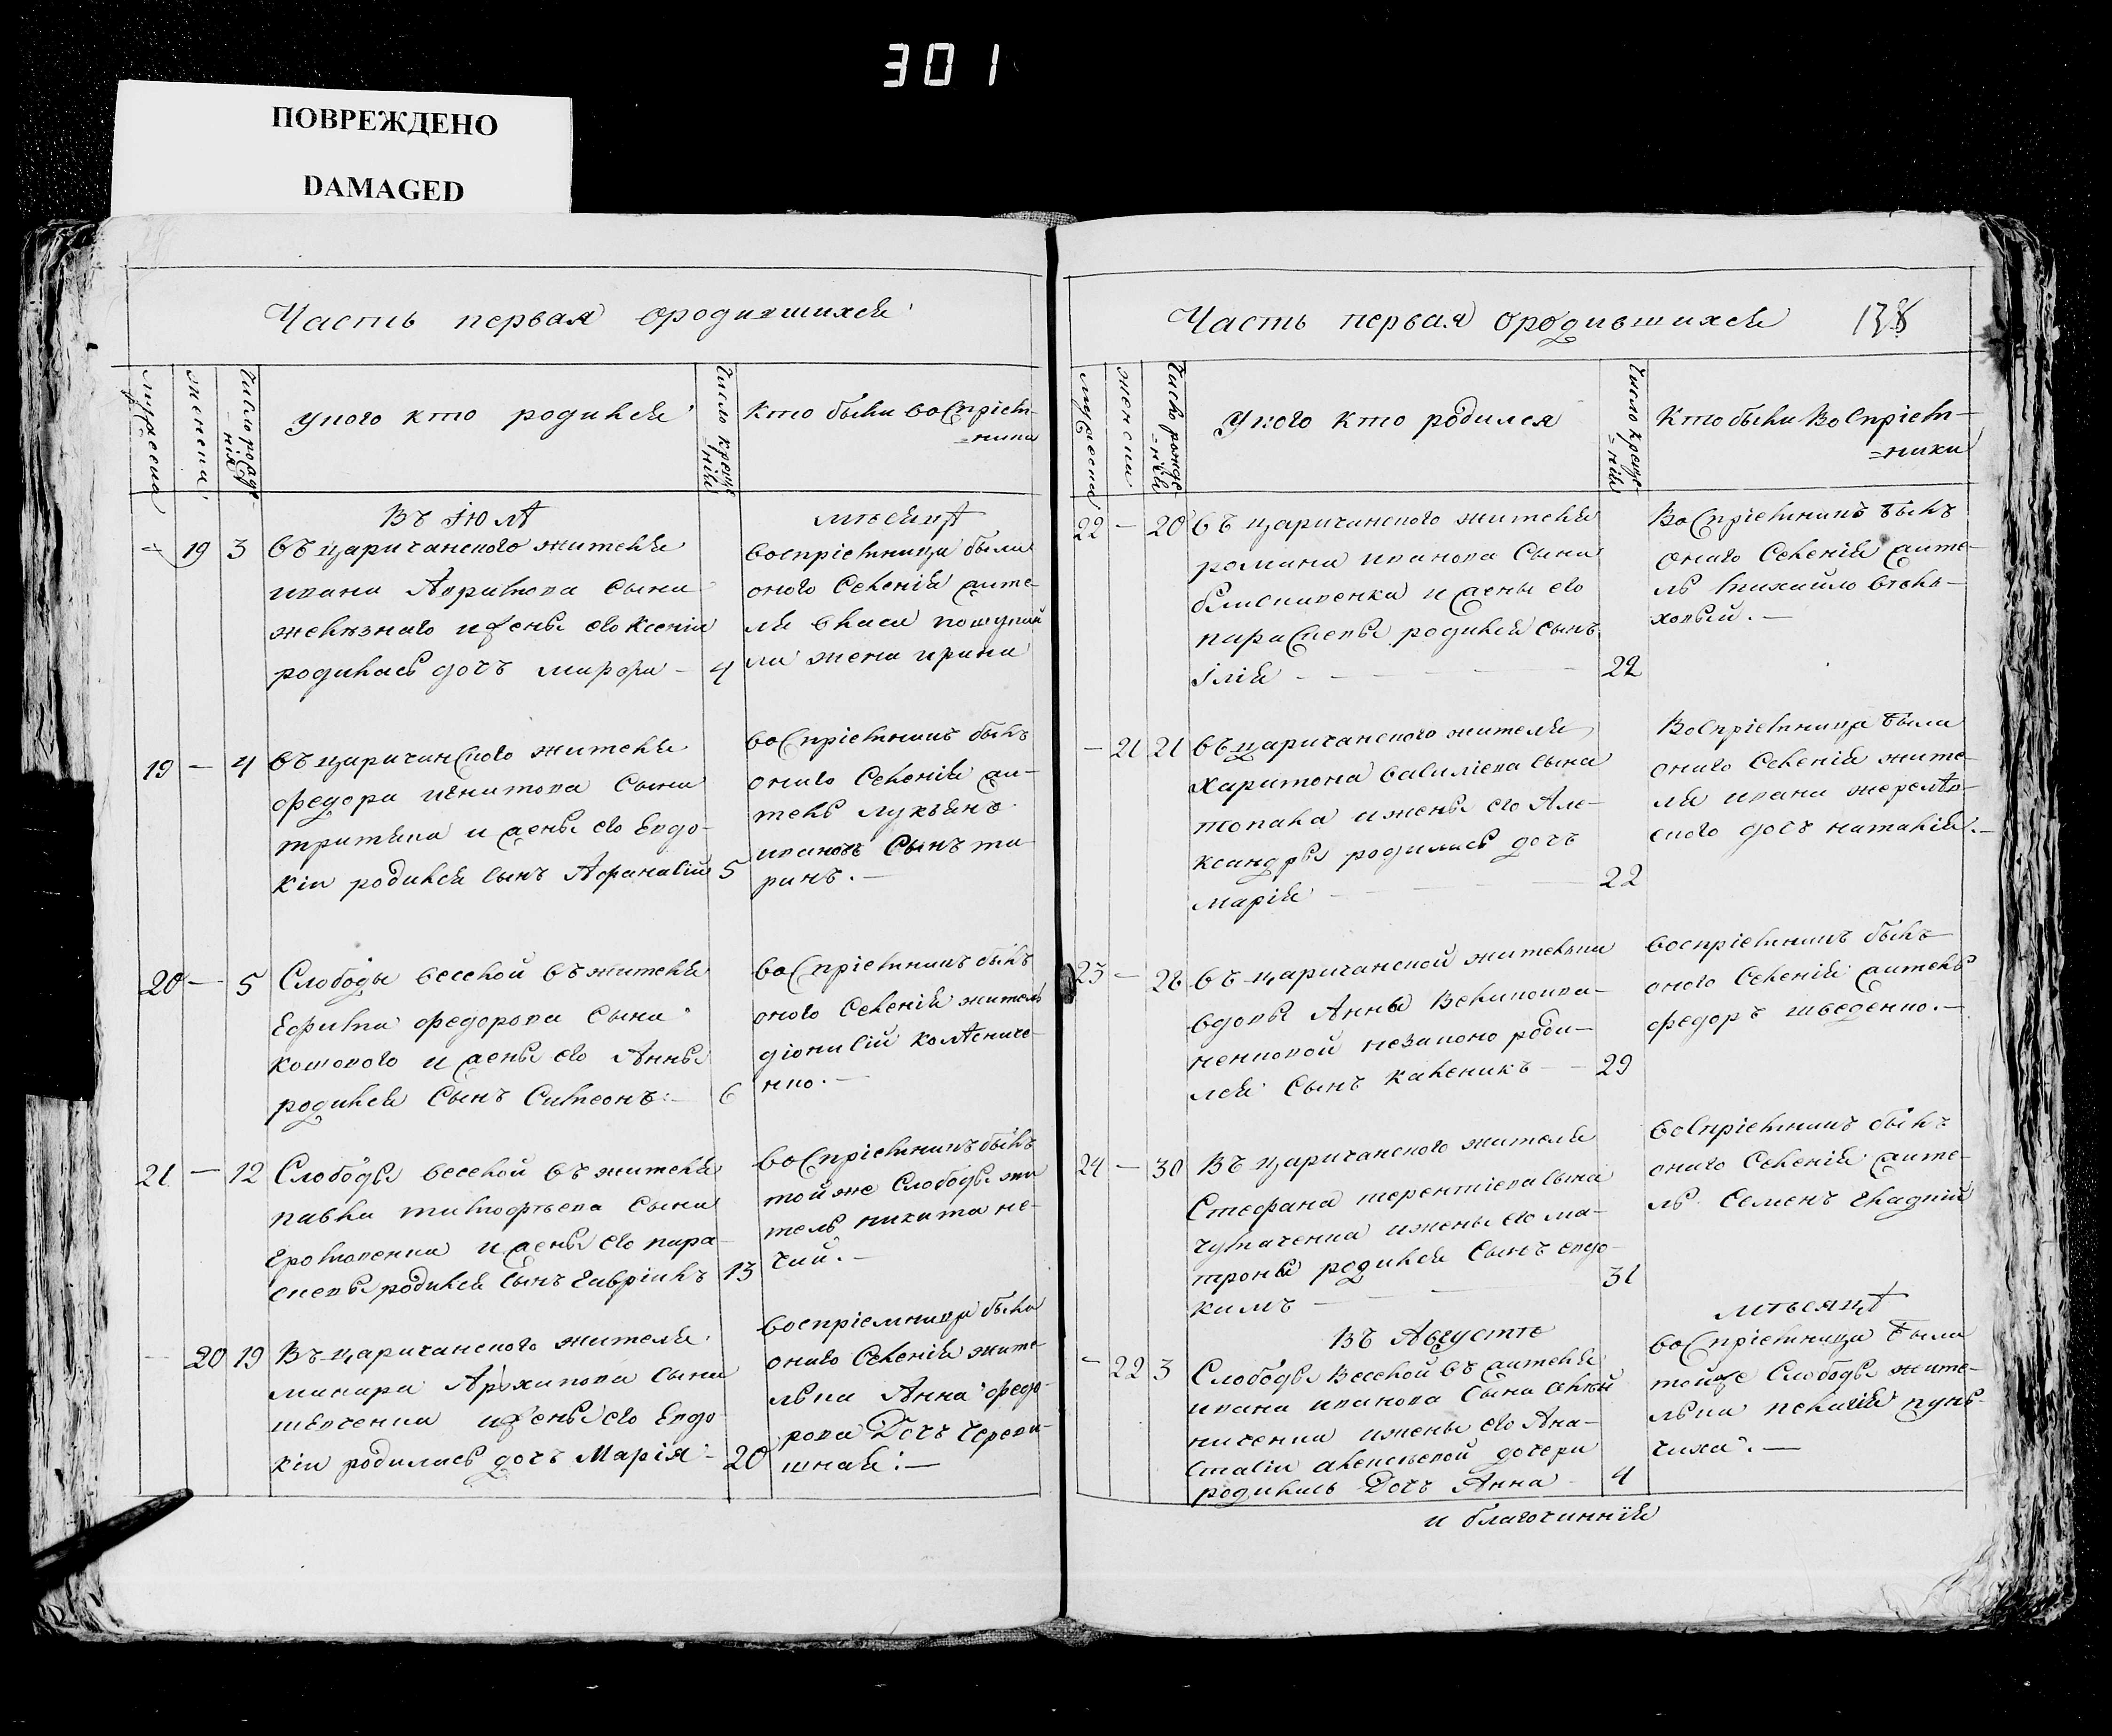 301
ПОВРЕЖДЕНО
DAMAGED
Часть первая ородившихся
мужеска
женска
Число рожде-
нія
У кого кто родился
Число креще-
нія
Кто были Воспріем-
=ники
Въ Іюлѣ
мѣсяцѣ
19 3 въ царичанского жителя
ивана сына
и жены его Ксенія
родилась дочъ Марфа - 4
воспріемница была
оного Селенія жите-
ля
жена ирина
19 - 4 въ царичанского жителя
федора никитова Сына
и жены его Евдо-
кіи родился Сынъ Афанасій 5
воспріемникъ былъ
оного Селенія жи-
тель лукъянъ
ивановъ Сынъ та-
ранъ.-
20 - 5 Слободы веселой въ жителя
Ефима федорова Сына
котового и жены его Анны
родился Сынъ Симеонъ:- 6
воспріемникъ былъ
оного Селенія житель
діонисій колѣсниче-
нко.-
21 - 12 Слободы веселой въ жителя
павла тимофѣева Сына
Еромовенка и жены его пара-
скевы родился Сынъ Гавріилъ 13
воспріемникъ былъ
той же Слободы жи
тель никита не-
чай.-
- 20 19 Въ царичанского жителя
макара Архипова Сына
шевченка и жены его Евдо
кіи родилась дочъ Марія - 20
воспріемница была
оного Селенія жите-
лька Анна федо-
рова Дочъ Черева-
шная:-
Часть первая ородившихся 138
мужеска
женска
Число рожде-
=нія
У кого кто родился
Число креще-
=нія
Кто были Воспріем-
=ники
22 - 20 въ царичанского жителя
романа иванова Сына
близнивенка и жены его
параскевы родился сынъ
Ілія 22
Воспріемникъ былъ
оного Селенія жите-
ль михайло
.-
- 21 21 въ царичанского жителя
Харитона василіева сына
товпака и жены его Але-
ксандры родилась дочъ
марія 22
Воспріемница была
оного Селенія жите-
ля ивана
дочъ наталія.-
23 - 28 въ царичанской жителки
вдовы Анны
незаконо роди-
лся Сынъ каленикъ - 29
воспріемникъ былъ
оного Селенія житель
федоръ шведенко.-
24 - 30 Въ царичанского жителя
Стефана терентіева сына
чумаченка и жены его ма-
троны родился Сынъ евдо-
кимъ 31
воспріемникъ былъ
оного Селенія жите-
ль Семенъ гладкій
Въ Августѣ
мѣсяцѣ
- 22 3 Слободы Веселой въ жителя
ивана иванова Сына
и жены его Ана-
стасіи алексѣевой дочери
родилась Дочъ Анна - 4
воспріемница была
той же Слободы жите-
лька пелагія
.-
и благочинній